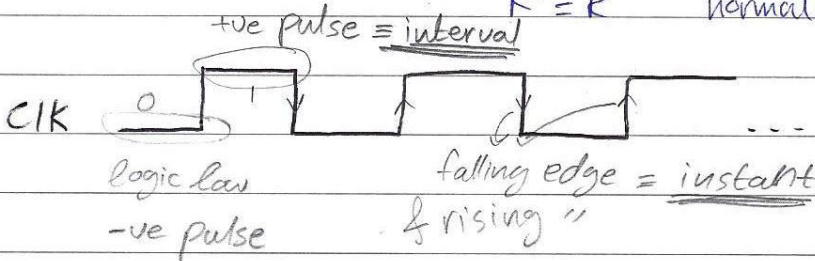 = R normal
+ve pulse ≡ interval
CLK 0 1 ...
logic low falling edge = instant
-ve pulse & rising "